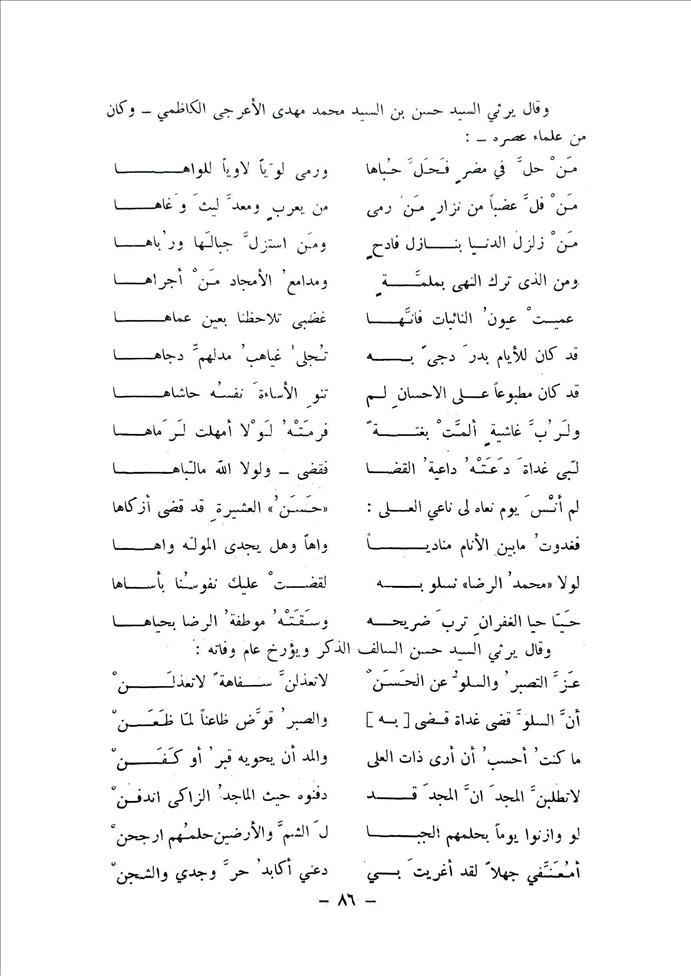 وقال يرثي السيد حسن بن السيد محمد مهدى الأعرجى الكاظمي ــ وكان
من علماء عصره ــ :
مَنْ حلَّ في مضرٍ فَحَلَّ حُباها ورمى لوَيّاً لاوياً للواهــا
مَنْ فلَّ عضباً من نزارٍ مَن رمى من يعربٍ ومعدَّ ليثَ وَغاهــا
مَنْ زلزل الدنيا بنــازل فادحٍ ومَن استزلَّ جبالَها ورُباهــا
ومن الذى ترك النهى بملمَّــةٍ ومدامعُ الأمجاد مَنْ أجراهــا
عميتْ عيونُ النائبات فانَّهــا غضبى تلاحظنا بعين عماهــا
قد كان للأيام بدرَ دجىً بــه تُجلىُ غياهبُ مدلهمِّ دجاهــا
قد كان مطبوعاً علــى الاحسانِ لم تنوِ الأساءةَ نفسُه حاشاهــا
ولرُبَّ غاشيةٍ ألمَّتْ بغتــةً فرمَتْهُ لَوْلا أمهلت لرَماهــا
لبّى غداةَ دَعَتْهُ داعيةُ القضــا فقضى ــ ولولا الله مالبّاهــا
لم أنْسَ يوم نعاه لى ناعي العلــى : «حَسَنُ» العشيرةِ قد قضى أزكاها
فغدوتُ مابين الأنام مناديــاً واهاً وهل يجدى المولّه واهــا
لولا «محمدُ الرضا» نسلو بــه لقضتْ عليك نفوسُنا بأسـاها
حيّا حيا الغفرانِ تربَ ضريحــه وسقَتْهُ موطفةُ الرضا بحياهــا
وقال يرثي السيد حسن السالف الذكر ويؤرخ عام وفاته :
عزَّ التصبرُ والسلوُّ عن الحَسَنْ لاتعذلنَّ ســفاهةً لاتعذلــنْ
أنَّ السلوَّ قضى غداة قــضى [ بــه ] والصبرُ قوَّض ظاعناً لمّا ظَعَــنْ
ما كنتُ أحسبُ أن أرى ذات العلى والمد أن يحويه قبرُ أو كَفَــنْ
لاتطلبنَّ المجدَ انَّ المجدَ قــد دفنوه حيث الماجدُ الزاكى اندفنْ
لو وازنوا يوماً بحلمهم الجبــا لَ الشمَّ والأرضين حلمُهم ارجحنْ
أمُعَنِّفي جهلاً لقد أغريتَ بــي دعني أكابدُ حرَّ وجدي والشجنْ
ــ ٨٦ ــ